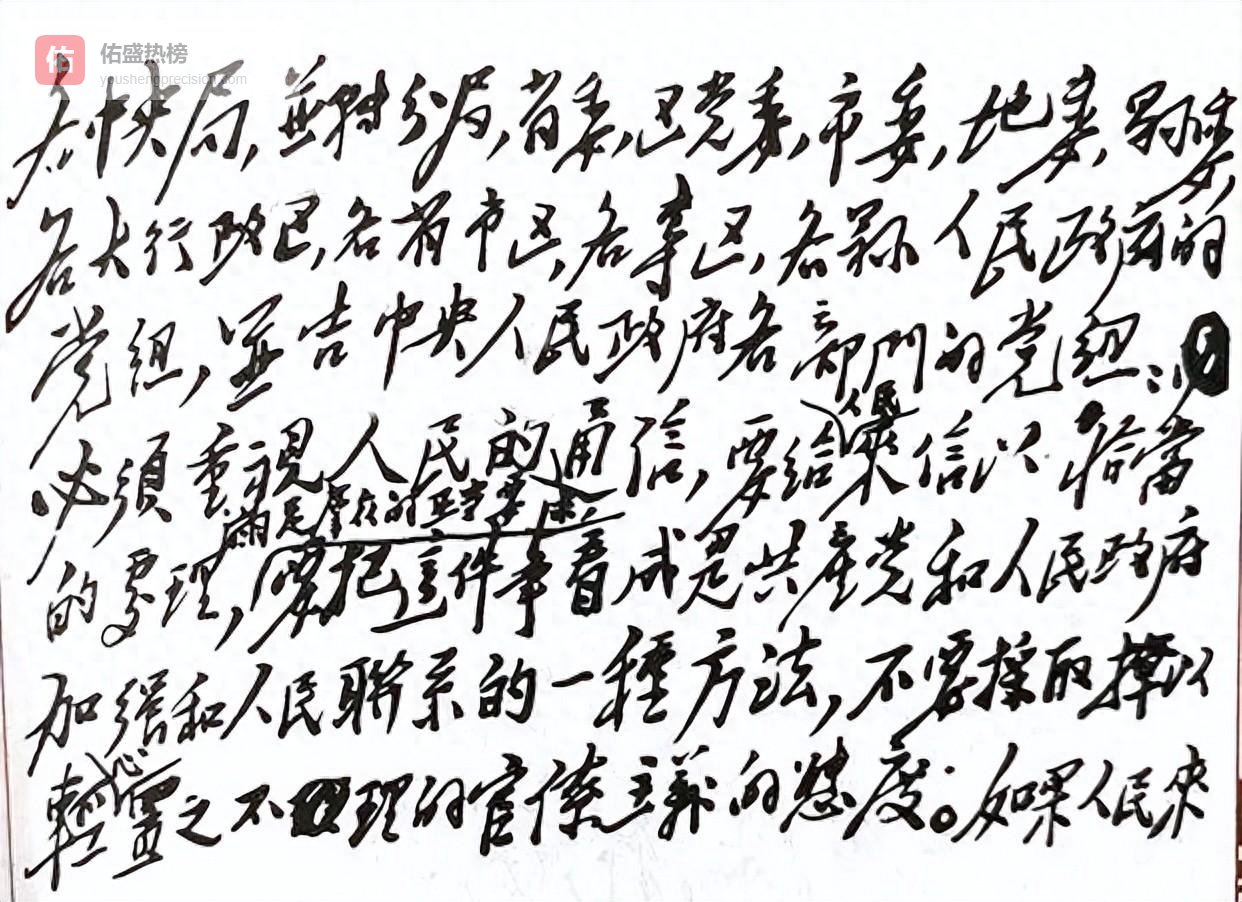 佑
佑盛热榜
youshengprecision.com
各中央局,並轉分局,省委,区党委,市委,地委,縣委,
各大行政区,各省市区,各專区,各縣人民政府的
党組,並告中央人民政府各部門的党組:
必須重視人民的通信,要給人民來信以恰當
的處理,滿足羣衆的正當要求,要把這件事看成是共產党和人民政府
加强和人民聯系的一種方法,不要採取掉以
輕心置之不理的官僚主義的態度。如果人民來